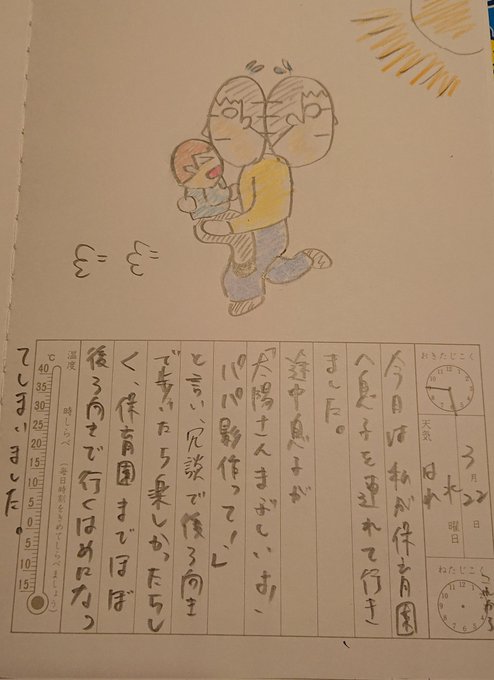 おきたじこく
天気
はれ
3月22日
水曜日
ねたじこく
これから
今日は私が保育園
へ息子を連れて行き
ました。
途中息子が
「太陽さんまぶしいよ、
パパ影作って!」
と言い、冗談で後ろ向き
で歩いたら楽しかったらし
く、保育園までほぼ
後ろ向きで行くはめになっ
てしまいました。
温度
時しらべ
(毎日時刻をきめてしらべましょう)
℃
40
35
30
25
20
15
10
5
0
5
10
15